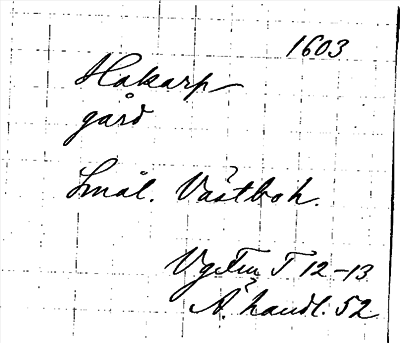 1603
Hakarp
gård
Smål. Västboh.
VgFtu T 12-13
Ä. handl. 52